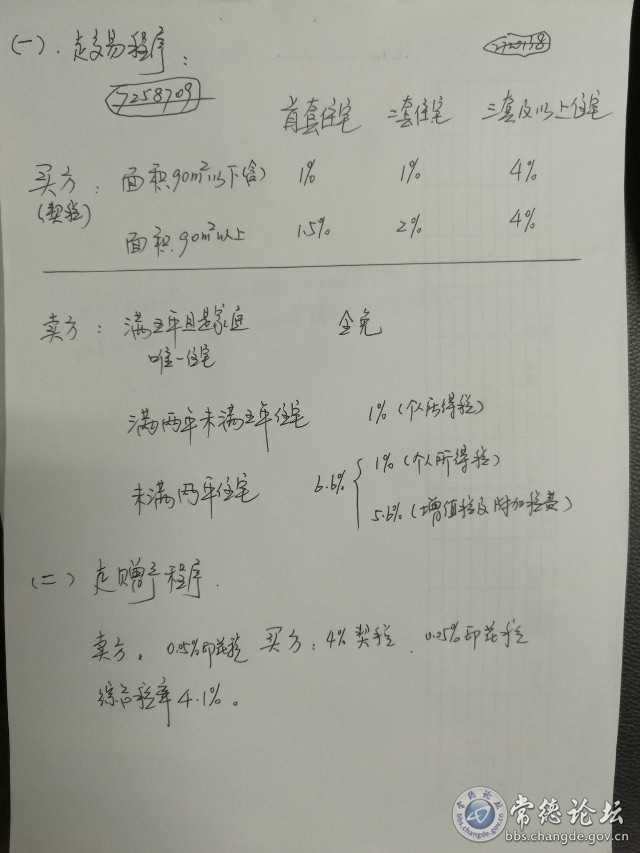 (一).走交易程序:
7258709
首套住宅 二套住宅 三套及以上住宅
买方: 面积90m²以下(含) 1% 1% 4%
(契税)
面积90m²以上 1.5% 2% 4%
卖方: 满五年且是家庭 全免
唯一住宅
满两年未满五年住宅 1%(个人所得税)
未满两年住宅 6.6% 1%(个人所得税)
5.6%(增值税及附加税费)
(二)走赠予程序.
卖方: 0.05%印花税 买方: 4%契税. 0.05%印花税
综合税率4.1%。
常德论坛
bbs.changde.gov.cn